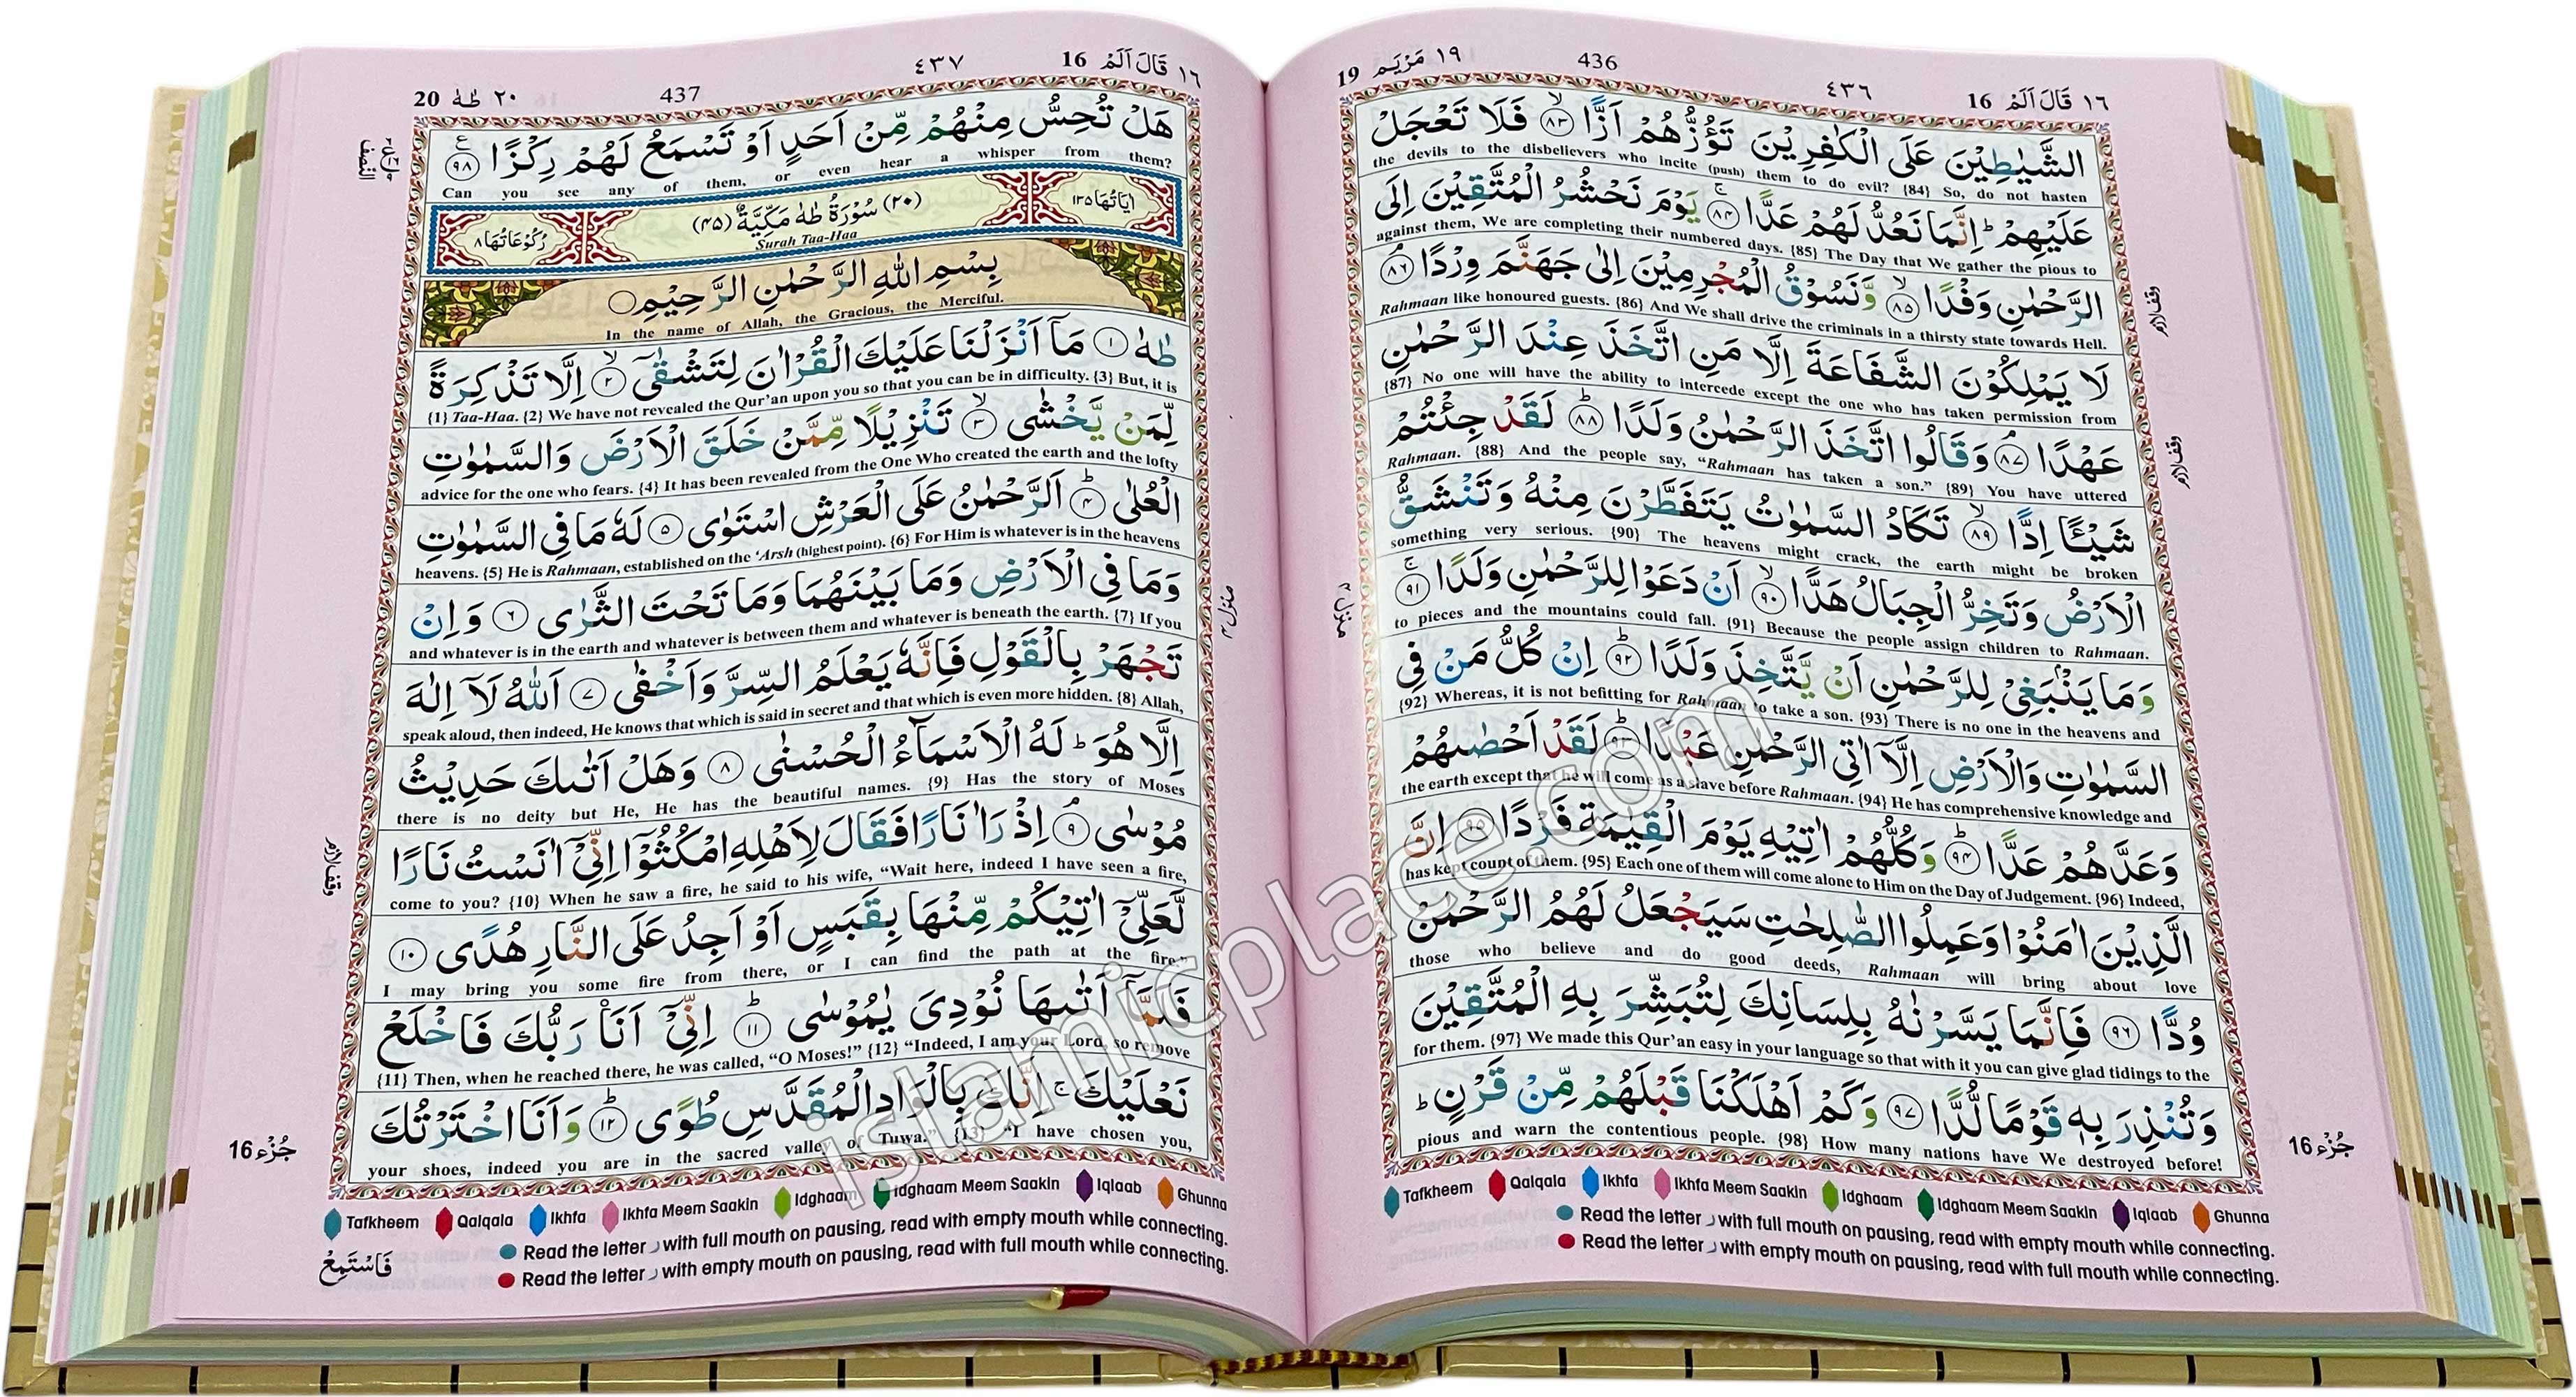 ١٩ مَرْيَم 19
436
٤٣٦
١٦ قَالَ اَلَمْ 16
الشَّيٰطِيْنَ عَلَى الْكٰفِرِيْنَ تَؤُزُّهُمْ اَزًّا ۙ‏﴿۸۳﴾ فَلَا تَعْجَلْ
the devils to the disbelievers who incite (push) them to do evil? {84} So, do not hasten
عَلَيْهِمْ ؕ اِنَّمَا نَعُدُّ لَهُمْ عَدًّا ۚ‏﴿۸۴﴾ يَوْمَ نَحْشُرُ الْمُتَّقِيْنَ اِلَى
against them, We are completing their numbered days. {85} The Day that We gather the pious to
الرَّحْمٰنِ وَفْدًا ۙ‏﴿۸۵﴾ وَّنَسُوْقُ الْمُجْرِمِيْنَ اِلٰى جَهَنَّمَ وِرْدًا ۘ‏﴿۸۶﴾
Rahmaan like honoured guests. {86} And We shall drive the criminals in a thirsty state towards Hell.
لَا يَمْلِكُوْنَ الشَّفَاعَةَ اِلَّا مَنِ اتَّخَذَ عِنْدَ الرَّحْمٰنِ
{87} No one will have the ability to intercede except the one who has taken permission from
عَهْدًا ۘ‏﴿۸۷﴾ وَقَالُوا اتَّخَذَ الرَّحْمٰنُ وَلَدًا ؕ‏﴿۸۸﴾ لَقَدْ جِئْتُمْ
Rahmaan. {88} And the people say, “Rahmaan has taken a son.” {89} You have uttered
شَيْـًٔا اِدًّا ۙ‏﴿۸۹﴾ تَكَادُ السَّمٰوٰتُ يَتَفَطَّرْنَ مِنْهُ وَتَنْشَقُّ
something very serious. {90} The heavens might crack, the earth might be broken
الْاَرْضُ وَتَخِرُّ الْجِبَالُ هَدًّا ۙ‏﴿۹۰﴾ اَنْ دَعَوْا لِلرَّحْمٰنِ وَلَدًا ۚ‏﴿۹۱﴾
to pieces and the mountains could fall. {91} Because the people assign children to Rahmaan.
وَمَا يَنْۢبَغِيْ لِلرَّحْمٰنِ اَنْ يَّتَّخِذَ وَلَدًا ؕ‏﴿۹۲﴾ اِنْ كُلُّ مَنْ فِي
{92} Whereas, it is not befitting for Rahmaan to take a son. {93} There is no one in the heavens and
السَّمٰوٰتِ وَالْاَرْضِ اِلَّاۤ اٰتِي الرَّحْمٰنِ عَبْدًا ؕ‏﴿۹۳﴾ لَقَدْ اَحْصٰىهُمْ
the earth except that he will come as a slave before Rahmaan. {94} He has comprehensive knowledge and
وَعَدَّهُمْ عَدًّا ؕ‏﴿۹۴﴾ وَكُلُّهُمْ اٰتِيْهِ يَوْمَ الْقِيٰمَةِ فَرْدًا ‏﴿۹۵﴾ اِنَّ
has kept count of them. {95} Each one of them will come alone to Him on the Day of Judgement. {96} Indeed,
الَّذِيْنَ اٰمَنُوْا وَعَمِلُوا الصّٰلِحٰتِ سَيَجْعَلُ لَهُمُ الرَّحْمٰنُ
those who believe and do good deeds, Rahmaan will bring about love
وُدًّا ‏﴿۹۶﴾ فَاِنَّمَا يَسَّرْنٰهُ بِلِسَانِكَ لِتُبَشِّرَ بِهِ الْمُتَّقِيْنَ
for them. {97} We made this Qur’an easy in your language so that with it you can give glad tidings to the
وَتُنْذِرَ بِهٖ قَوْمًا لُّدًّا ‏﴿۹۷﴾ وَكَمْ اَهْلَكْنَا قَبْلَهُمْ مِّنْ قَرْنٍ ؕ
pious and warn the contentious people. {98} How many nations have We destroyed before!
وقف لازم
وقف لازم
منزل ۴
جُزْء 16
Tafkheem Qalqala Ikhfa Ikhfa Meem Saakin Idghaam Idghaam Meem Saakin Iqlaab Ghunna
Read the letter ر with full mouth on pausing, read with empty mouth while connecting.
Read the letter ر with empty mouth on pausing, read with full mouth while connecting.
٢٠ طٰهٰ 20
437
٤٣٧
١٦ قَالَ اَلَمْ 16
هَلْ تُحِسُّ مِنْهُمْ مِّنْ اَحَدٍ اَوْ تَسْمَعُ لَهُمْ رِكْزًا ‏﴿۹۸﴾
Can you see any of them, or even hear a whisper from them?
اٰيَاتُهَا ١٣٥
(٢٠) سُوْرَةُ طٰهٰ مَكِّيَّةٌ (٤٥)
رُكُوْعَاتُهَا ٨
Surah Taa-Haa
بِسْمِ اللّٰهِ الرَّحْمٰنِ الرَّحِيْمِ
In the name of Allah, the Gracious, the Merciful.
طٰهٰ ‏﴿۱﴾ مَاۤ اَنْزَلْنَا عَلَيْكَ الْقُرْاٰنَ لِتَشْقٰٓى ۙ‏﴿۲﴾ اِلَّا تَذْكِرَةً
{1} Taa-Haa. {2} We have not revealed the Qur’an upon you so that you can be in difficulty. {3} But, it is
لِّمَنْ يَّخْشٰى ۙ‏﴿۳﴾ تَنْزِيْلًا مِّمَّنْ خَلَقَ الْاَرْضَ وَالسَّمٰوٰتِ
advice for the one who fears. {4} It has been revealed from the One Who created the earth and the lofty
الْعُلٰى ؕ‏﴿۴﴾ اَلرَّحْمٰنُ عَلَى الْعَرْشِ اسْتَوٰى ‏﴿۵﴾ لَهٗ مَا فِي السَّمٰوٰتِ
heavens. {5} He is Rahmaan, established on the ‘Arsh (highest point). {6} For Him is whatever is in the heavens
وَمَا فِي الْاَرْضِ وَمَا بَيْنَهُمَا وَمَا تَحْتَ الثَّرٰى ‏﴿۶﴾ وَاِنْ
and whatever is in the earth and whatever is between them and whatever is beneath the earth. {7} If you
تَجْهَرْ بِالْقَوْلِ فَاِنَّهٗ يَعْلَمُ السِّرَّ وَاَخْفٰى ‏﴿۷﴾ اَللّٰهُ لَاۤ اِلٰهَ
speak aloud, then indeed, He knows that which is said in secret and that which is even more hidden. {8} Allah,
اِلَّا هُوَ ؕ لَهُ الْاَسْمَآءُ الْحُسْنٰى ‏﴿۸﴾ وَهَلْ اَتٰىكَ حَدِيْثُ
there is no deity but He, He has the beautiful names. {9} Has the story of Moses
مُوْسٰى ۘ‏﴿۹﴾ اِذْ رَاٰ نَارًا فَقَالَ لِاَهْلِهِ امْكُثُوْۤا اِنِّيْۤ اٰنَسْتُ نَارًا
come to you? {10} When he saw a fire, he said to his wife, “Wait here, indeed I have seen a fire,
لَّعَلِّيْۤ اٰتِيْكُمْ مِّنْهَا بِقَبَسٍ اَوْ اَجِدُ عَلَى النَّارِ هُدًى ‏﴿۱۰﴾
I may bring you some fire from there, or I can find the path at the fire.”
فَلَمَّاۤ اَتٰىهَا نُوْدِيَ يٰمُوْسٰى ؕ‏﴿۱۱﴾ اِنِّيْۤ اَنَا رَبُّكَ فَاخْلَعْ
{11} Then, when he reached there, he was called, “O Moses!” {12} “Indeed, I am your Lord, so remove
نَعْلَيْكَ ۚ اِنَّكَ بِالْوَادِ الْمُقَدَّسِ طُوًى ؕ‏﴿۱۲﴾ وَاَنَا اخْتَرْتُكَ
your shoes, indeed you are in the sacred valley of Tuwa.” {13} “I have chosen you,
النصف
وقف لازم
منزل ۴
جُزْء 16
Tafkheem Qalqala Ikhfa Ikhfa Meem Saakin Idghaam Idghaam Meem Saakin Iqlaab Ghunna
Read the letter ر with full mouth on pausing, read with empty mouth while connecting.
Read the letter ر with empty mouth on pausing, read with full mouth while connecting.
فَاسْتَمِعْ
islamicplace.com